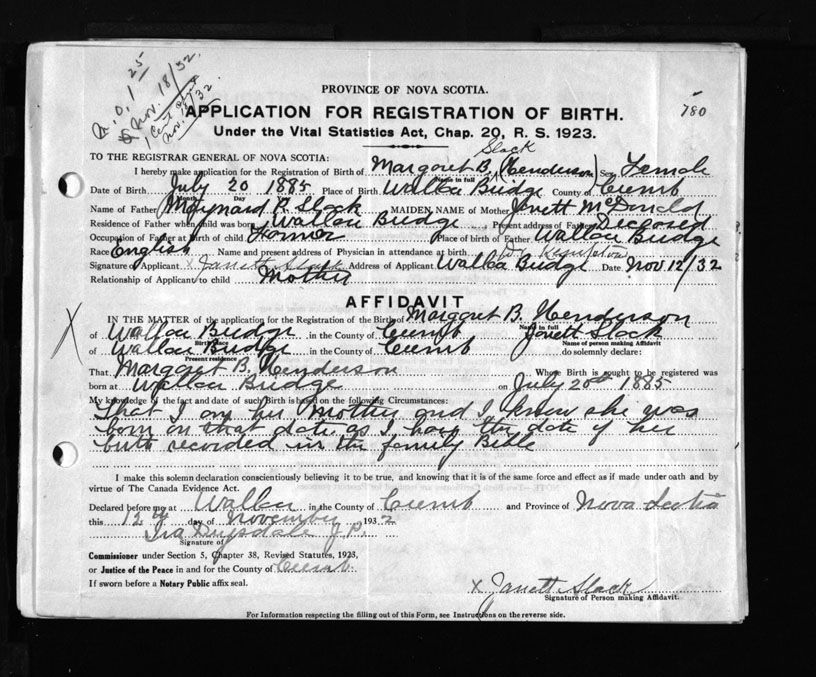 25
Nov. 18/32.
Nov. 18/32.
780
PROVINCE OF NOVA SCOTIA.
APPLICATION FOR REGISTRATION OF BIRTH.
Under the Vital Statistics Act, Chap. 20, R. S. 1923.
TO THE REGISTRAR GENERAL OF NOVA SCOTIA:
Slack
I hereby make application for the Registration of Birth of Margaret B. (Henderson) Sex Female
Name in full
Date of Birth July 20 1885 Place of Birth Wallace Bridge County of Cumb
Month Day
Name of Father Maynard R. Slack MAIDEN NAME of Mother Janett McDonald
Residence of Father when child was born Wallace Bridge Present address of Father Deceased
Occupation of Father at Birth of child Farmer Place of birth of Father Wallace Bridge
Race English Name and present address of Physician in attendance at birth
Signature of Applicant x Janett Slack Address of Applicant Wallace Bridge Date Nov 12/32
Relationship of Applicant to child Mother
AFFIDAVIT
IN THE MATTER of the application for the Registration of the Birth of Margaret B. Henderson
Name in full
of Wallace Bridge in the County of Cumb Janett Slack
Birth place Name of person making Affidavit
of Wallace Bridge in the County of Cumb do solemnly declare:
Present residence
That Margaret B. Henderson Whose Birth is sought to be registered was
born at Wallace Bridge on July 20th 1885
My knowledge of the fact and date of such Birth is based on the following Circumstances:
That I am her Mother and I know she was
born on that date as I have the date of her
birth recorded in the family Bible
I make this solemn declaration conscientiously believing it to be true, and knowing that it is of the same force and effect as if made under oath and by
virtue of The Canada Evidence Act.
Declared before me at Wallace in the County of Cumb and Province of Nova Scotia
this 12th day of November 1932
Ira Drysdale J.P.
Signature of
Commissioner under Section 5, Chapter 38, Revised Statutes, 1923,
or Justice of the Peace in and for the County of Cumb.
If sworn before a Notary Public affix seal.
x Janett Slack
Signature of Person making Affidavit.
For Information respecting the filling out of this Form, see Instructions on the reverse side.